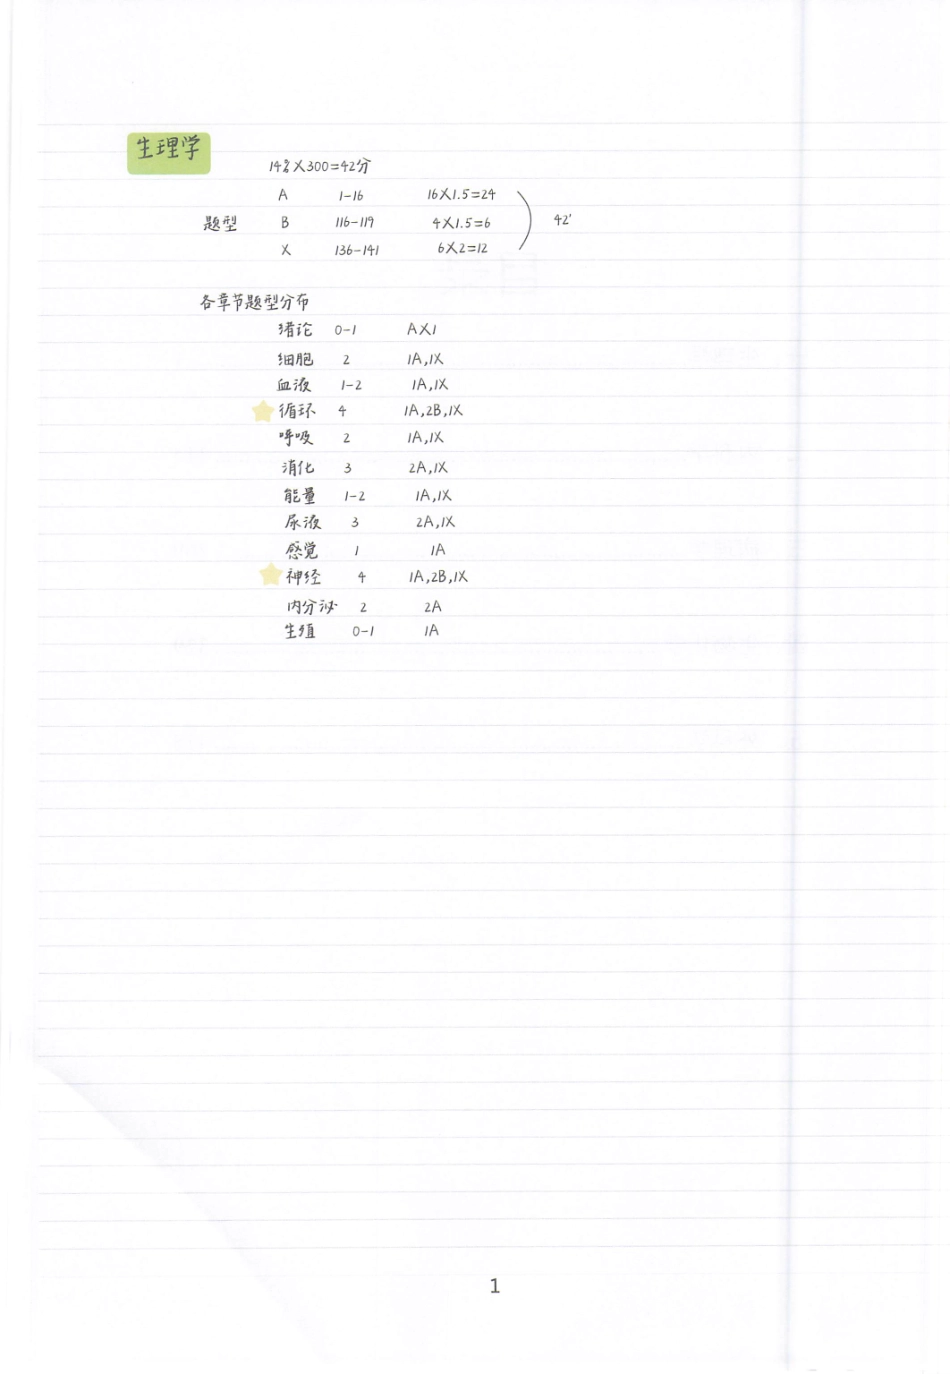 生理学
14%X300=42分
A 1-16 16X1.5=24
题型 B 116-119 4X1.5=6 42'
X 136-141 6X2=12
各章节题型分布
绪论 0-1 AX1
细胞 2 1A,1X
血液 1-2 1A,1X
循环 4 1A,2B,1X
呼吸 2 1A,1X
消化 3 2A,1X
能量 1-2 1A,1X
尿液 3 2A,1X
感觉 1 1A
神经 4 1A,2B,1X
内分泌 2 2A
生殖 0-1 1A
1